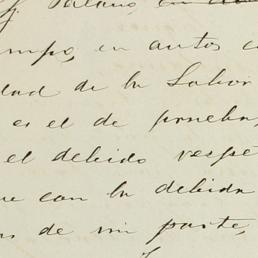 y Palano, en
empo, en autos c
dad de la Labor
es el de prueba,
el debido respe
ue con la debida
as de mi parte,